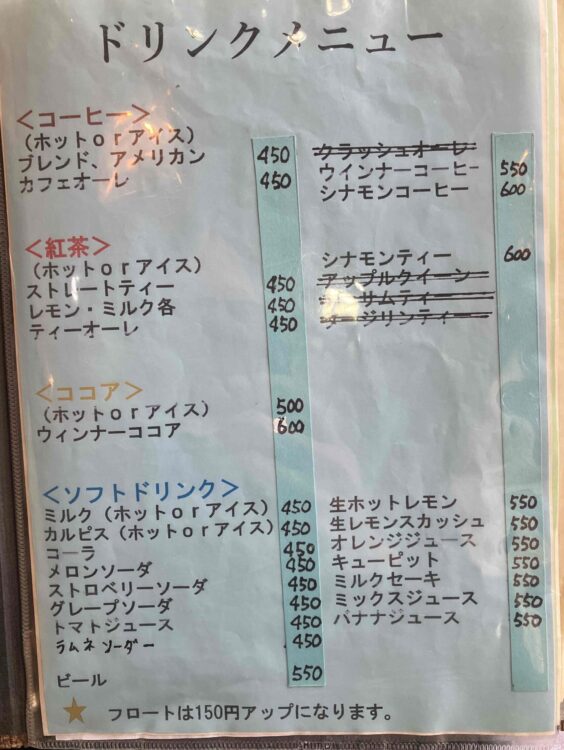 ドリンクメニュー
＜コーヒー＞
（ホットｏｒアイス）
ブレンド、アメリカン 450
カフェオーレ 450
クラッシュオーレ
ウインナーコーヒー 550
シナモンコーヒー 600
＜紅茶＞
（ホットｏｒアイス）
ストレートティー 450
レモン・ミルク各 450
ティーオーレ 450
シナモンティー 600
アップルクイーン
サムティー
ージリンティー
＜ココア＞
（ホットｏｒアイス） 500
ウィンナーココア 600
＜ソフトドリンク＞
ミルク（ホットｏｒアイス） 450
カルピス（ホットｏｒアイス） 450
コーラ 450
メロンソーダ 450
ストロベリーソーダ 450
グレープソーダ 450
トマトジュース 450
ラムネソーダー 450
ビール 550
生ホットレモン 550
生レモンスカッシュ 550
オレンジジュース 550
キューピット 550
ミルクセーキ 550
ミックスジュース 550
バナナジュース 550
★ フロートは150円アップになります。